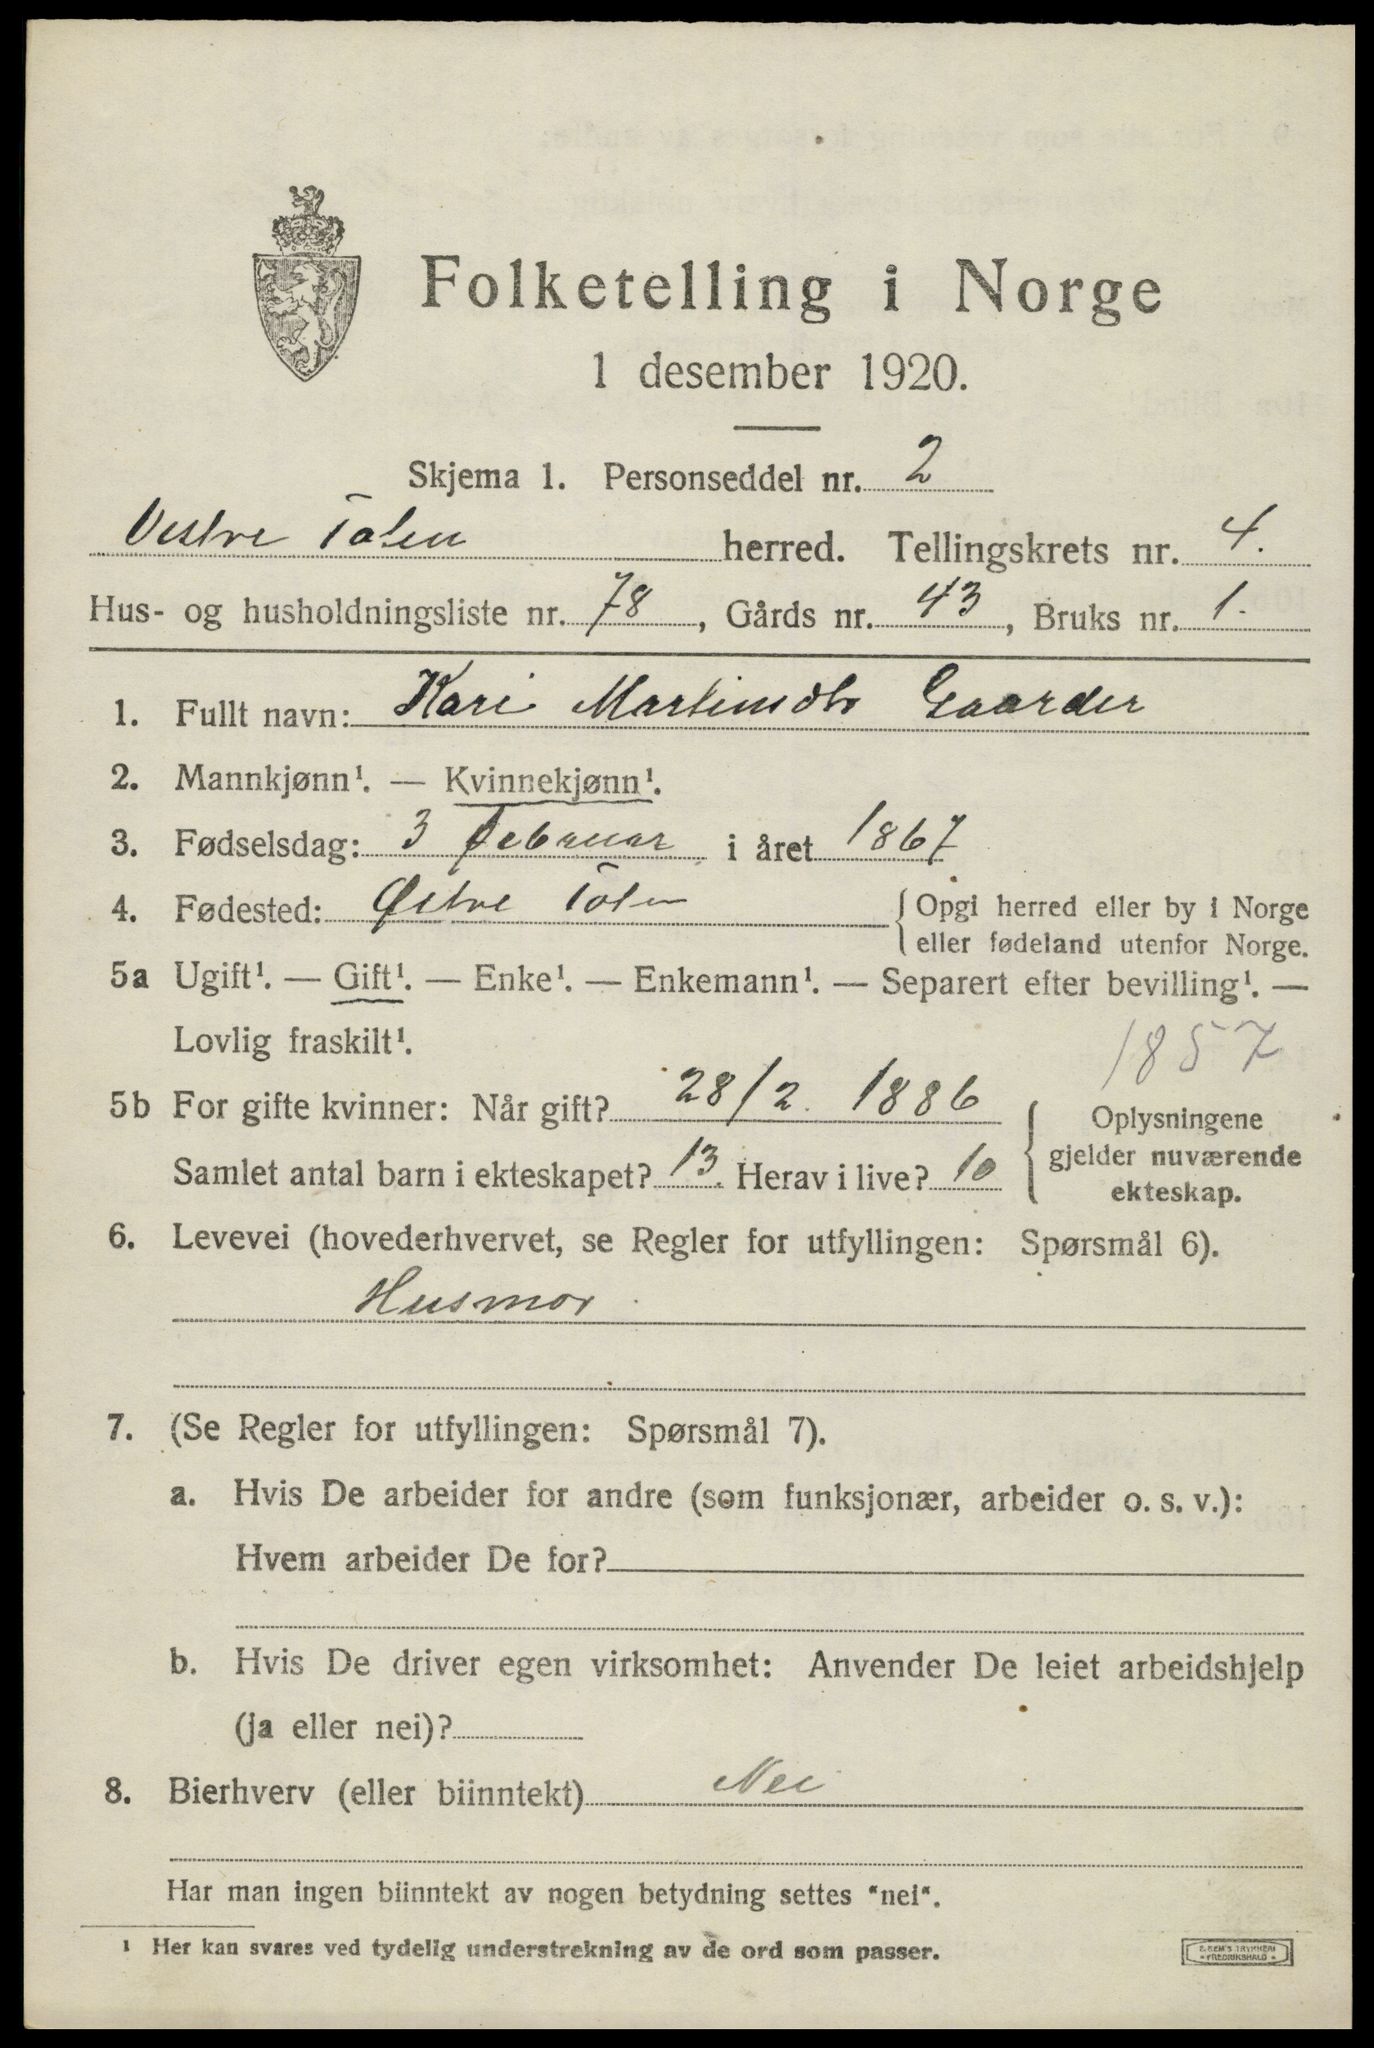 Folketelling i Norge
1 desember 1920.
Skjema 1. Personseddel nr. 2
Vestre Toten herred. Tellingskrets nr. 4.
Hus- og husholdningsliste nr. 78, Gårds nr. 43, Bruks nr. 1.
1. Fullt navn: Kari Martinsdtr Gaarder
2. Mannkjønn¹. — Kvinnekjønn¹.
3. Fødselsdag: 3 Februar i året 1867
4. Fødested: Østre Toten {Opgi herred eller by i Norge
eller fødeland utenfor Norge.
5a Ugift¹. — Gift¹. — Enke¹. — Enkemann¹. — Separert efter bevilling¹. —
Lovlig fraskilt¹. 1857
5b For gifte kvinner: Når gift? 28/2. 1886
Samlet antal barn i ekteskapet? 13. Herav i live? 10
{Oplysningene
gjelder nuværende
ekteskap.
6. Levevei (hovederhvervet, se Regler for utfyllingen: Spørsmål 6).
Husmor.
7. (Se Regler for utfyllingen: Spørsmål 7).
a. Hvis De arbeider for andre (som funksjonær, arbeider o. s. v.):
Hvem arbeider De for?
b. Hvis De driver egen virksomhet: Anvender De leiet arbeidshjelp
(ja eller nei)?
8. Bierhverv (eller biinntekt) Nei
Har man ingen biinntekt av nogen betydning settes "nei".
¹ Her kan svares ved tydelig understrekning av de ord som passer.
E. SEM'S TRYKKERI
FREDRIKSHALD